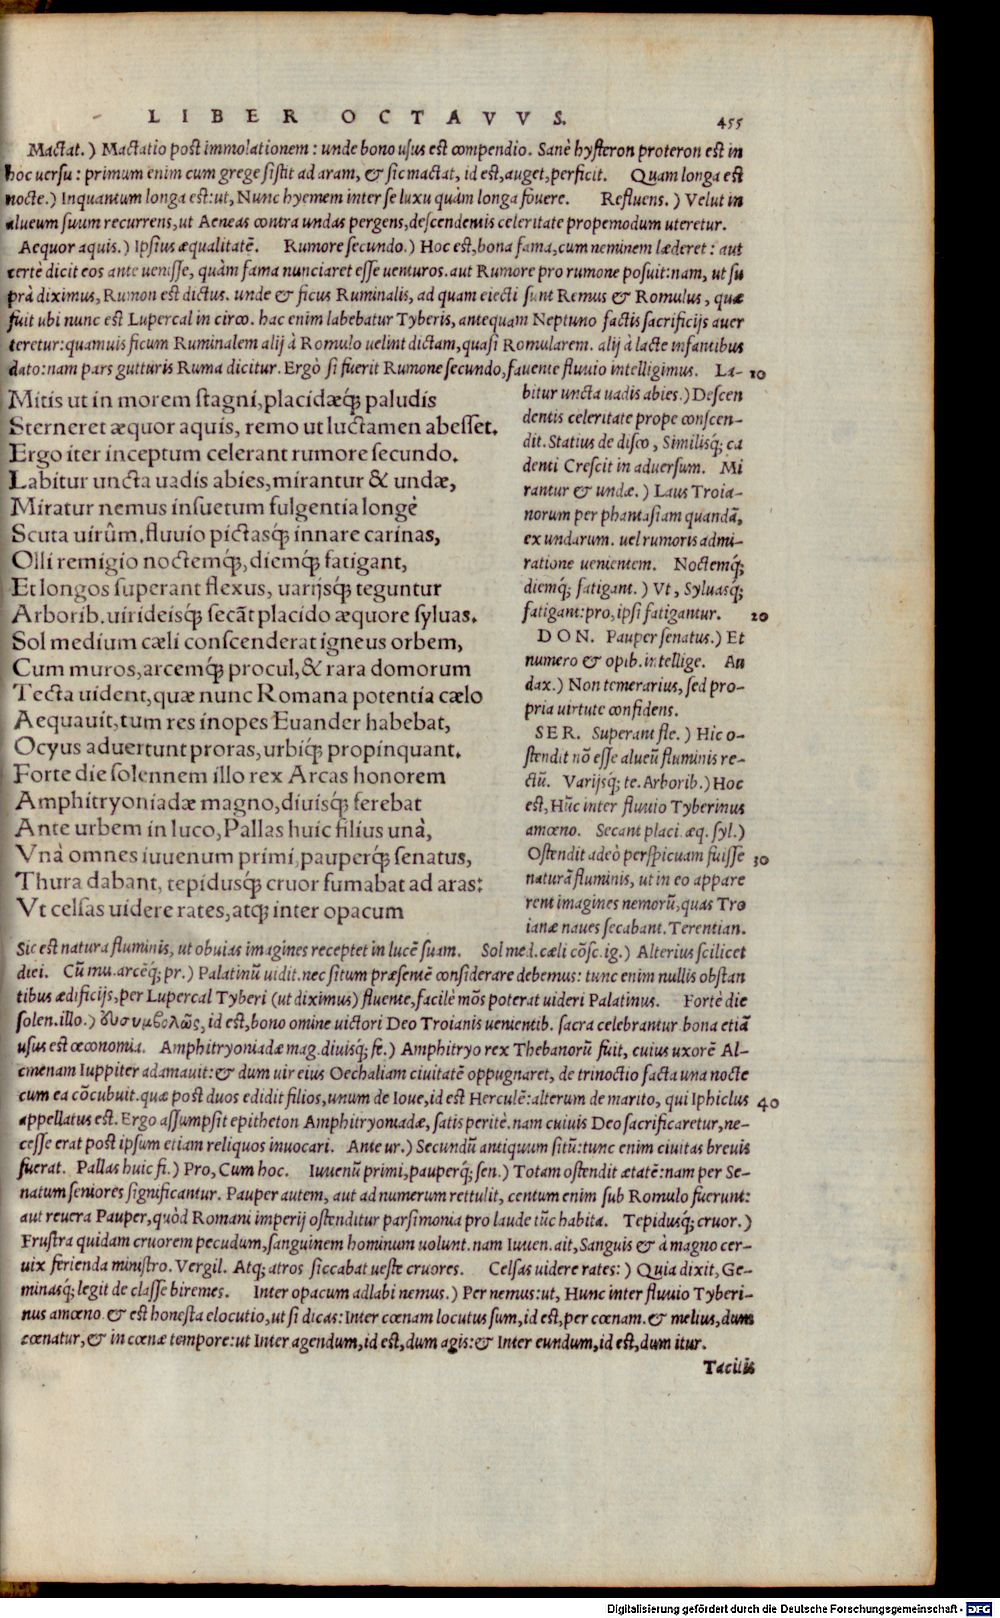 LIBER OCTAVVS. 455
Mactat.) Mactatio post immolationem: unde bono usus est compendio. Sanè hysteron proteron est in
hoc uersu: primum enim cum grege sistit ad aram, & sic mactat, id est, auget, perficit. Quam longa est
nocte.) Inquantum longa est: ut, Nunc hyemem inter se luxu quàm longa fouere. Refluens.) Velut in
alueum suum recurrens, ut Aeneas contra undas pergens, descendentis celeritate propemodum uteretur.
Aequor aquis.) Ipsius æqualitatẽ. Rumore secundo.) Hoc est, bona fama, cum neminem læderet: aut
certè dicit eos ante uenisse, quàm fama nunciaret esse uenturos. aut Rumore pro rumone posuit: nam, ut su
prà diximus, Rumon est dictus. unde & ficus Ruminalis, ad quam eiecti sunt Remus & Romulus, quæ
fuit ubi nunc est Lupercal in circo. hac enim labebatur Tyberis, antequam Neptuno factis sacrificijs auer
teretur: quamuis ficum Ruminalem alij à Romulo uelint dictam, quasi Romularem. alij à lacte infantibus
dato: nam pars gutturis Ruma dicitur. Ergò si fuerit Rumone secundo, fauente fluuio intelligimus. La- 10
Mitis ut in morem stagni, placidæq́; paludis
Sterneret æquor aquis, remo ut luctamen abesset.
Ergo iter inceptum celerant rumore secundo.
Labitur uncta uadis abies, mirantur & undæ,
Miratur nemus insuetum fulgentia longè
Scuta uirûm, fluuio pictasq́; innare carinas,
Olli remigio noctemq́;, diemq́; fatigant,
Et longos superant flexus, uarijsq́; teguntur
Arborib. uirideisq́; secãt placido æquore syluas.
Sol medium cæli conscenderat igneus orbem,
Cum muros, arcemq́; procul, & rara domorum
Tecta uident, quæ nunc Romana potentia cælo
Aequauit, tum res inopes Euander habebat,
Ocyus aduertunt proras, urbiq́; propinquant.
Forte die solennem illo rex Arcas honorem
Amphitryoniadæ magno, diuisq́; ferebat
Ante urbem in luco, Pallas huic filius unà,
Vnà omnes iuuenum primi, pauperq́; senatus,
Thura dabant, tepidusq́; cruor fumabat ad aras:
Vt celsas uidere rates, atq; inter opacum
bitur uncta uadis abies.) Descen
dentis celeritate prope conscen-
dit. Statius de disco, Similisq; ca
denti Crescit in aduersum. Mi
rantur & undæ.) Laus Troia-
norum per phantasiam quandã,
ex undarum. uel rumoris admi-
ratione uenientem. Noctemq́;
diemq́; fatigant.) Vt, Syluasq́;
fatigant: pro, ipsi fatigantur. 20
DON. Pauper senatus.) Et
numero & opib. intellige. Au
dax.) Non temerarius, sed pro-
pria uirtute confidens.
SER. Superant fle.) Hic o-
stendit nõ esse alueũ fluminis re-
ctũ. Varijsq́; te. Arborib.) Hoc
est, Hũc inter fluuio Tyberinus
amœno. Secant placi. æq. syl.)
Ostendit adeò perspicuam fuisse 30
naturã fluminis, ut in eo appare
rent imagines nemorũ, quas Tro
ianæ naues secabant. Terentian.
Sic est natura fluminis, ut obuias imagines receptet in lucẽ suam. Sol med. cæli cõsc. ig.) Alterius scilicet
diei. Cũ mu. arcẽq́; pr.) Palatinũ uidit. nec situm præsentẽ considerare debemus: tunc enim nullis obstan
tibus ædificijs, per Lupercal Tyberi (ut diximus) fluente, facilè mõs poterat uideri Palatinus. Fortè die
solen. illo.) ἐυσυμβολῶς, id est, bono omine uictori Deo Troianis uenientib. sacra celebrantur. bona etiã
usus est œconomia. Amphitryoniadæ mag. diuisq́; fe.) Amphitryo rex Thebanorũ fuit, cuius uxorẽ Al-
cmenam Iuppiter adamauit: & dum uir eius Oechaliam ciuitatẽ oppugnaret, de trinoctio facta una nocte
cum ea cõcubuit. quæ post duos edidit filios, unum de Ioue, id est Herculẽ: alterum de marito, qui Iphiclus 40
appellatus est. Ergo assumpsit epitheton Amphitryoniadæ, satis peritè. nam cuiuis Deo sacrificaretur, ne-
cesse erat post ipsum etiam reliquos inuocari. Ante ur.) Secundũ antiquum sitũ: tunc enim ciuitas breuis
fuerat. Pallas huic fi.) Pro, Cum hoc. Iuuenũ primi, pauperq́; sen.) Totam ostendit ætatẽ: nam per Se-
natum seniores significantur. Pauper autem, aut ad numerum rettulit, centum enim sub Romulo fuerunt:
aut reuera Pauper, quòd Romani imperij ostenditur parsimonia pro laude tũc habita. Tepidusq́; cruor.)
Frustra quidam cruorem pecudum, sanguinem hominum uolunt. nam Iuuen. ait, Sanguis & à magno cer-
uix ferienda ministro. Vergil. Atq; atros siccabat ueste cruores. Celsas uidere rates:) Quia dixit, Ge-
minasq́; legit de classe biremes. Inter opacum adlabi nemus.) Per nemus: ut, Hunc inter fluuio Tyberi-
nus amœno. & est honesta elocutio, ut si dicas: Inter cœnam locutus sum, id est, per cœnam. & melius, dum
cœnatur, & in cœnæ tempore: ut Inter agendum, id est, dum agis: & Inter eundum, id est, dum itur.
Tacitis
Digitalisierung gefördert durch die Deutsche Forschungsgemeinschaft - DFG